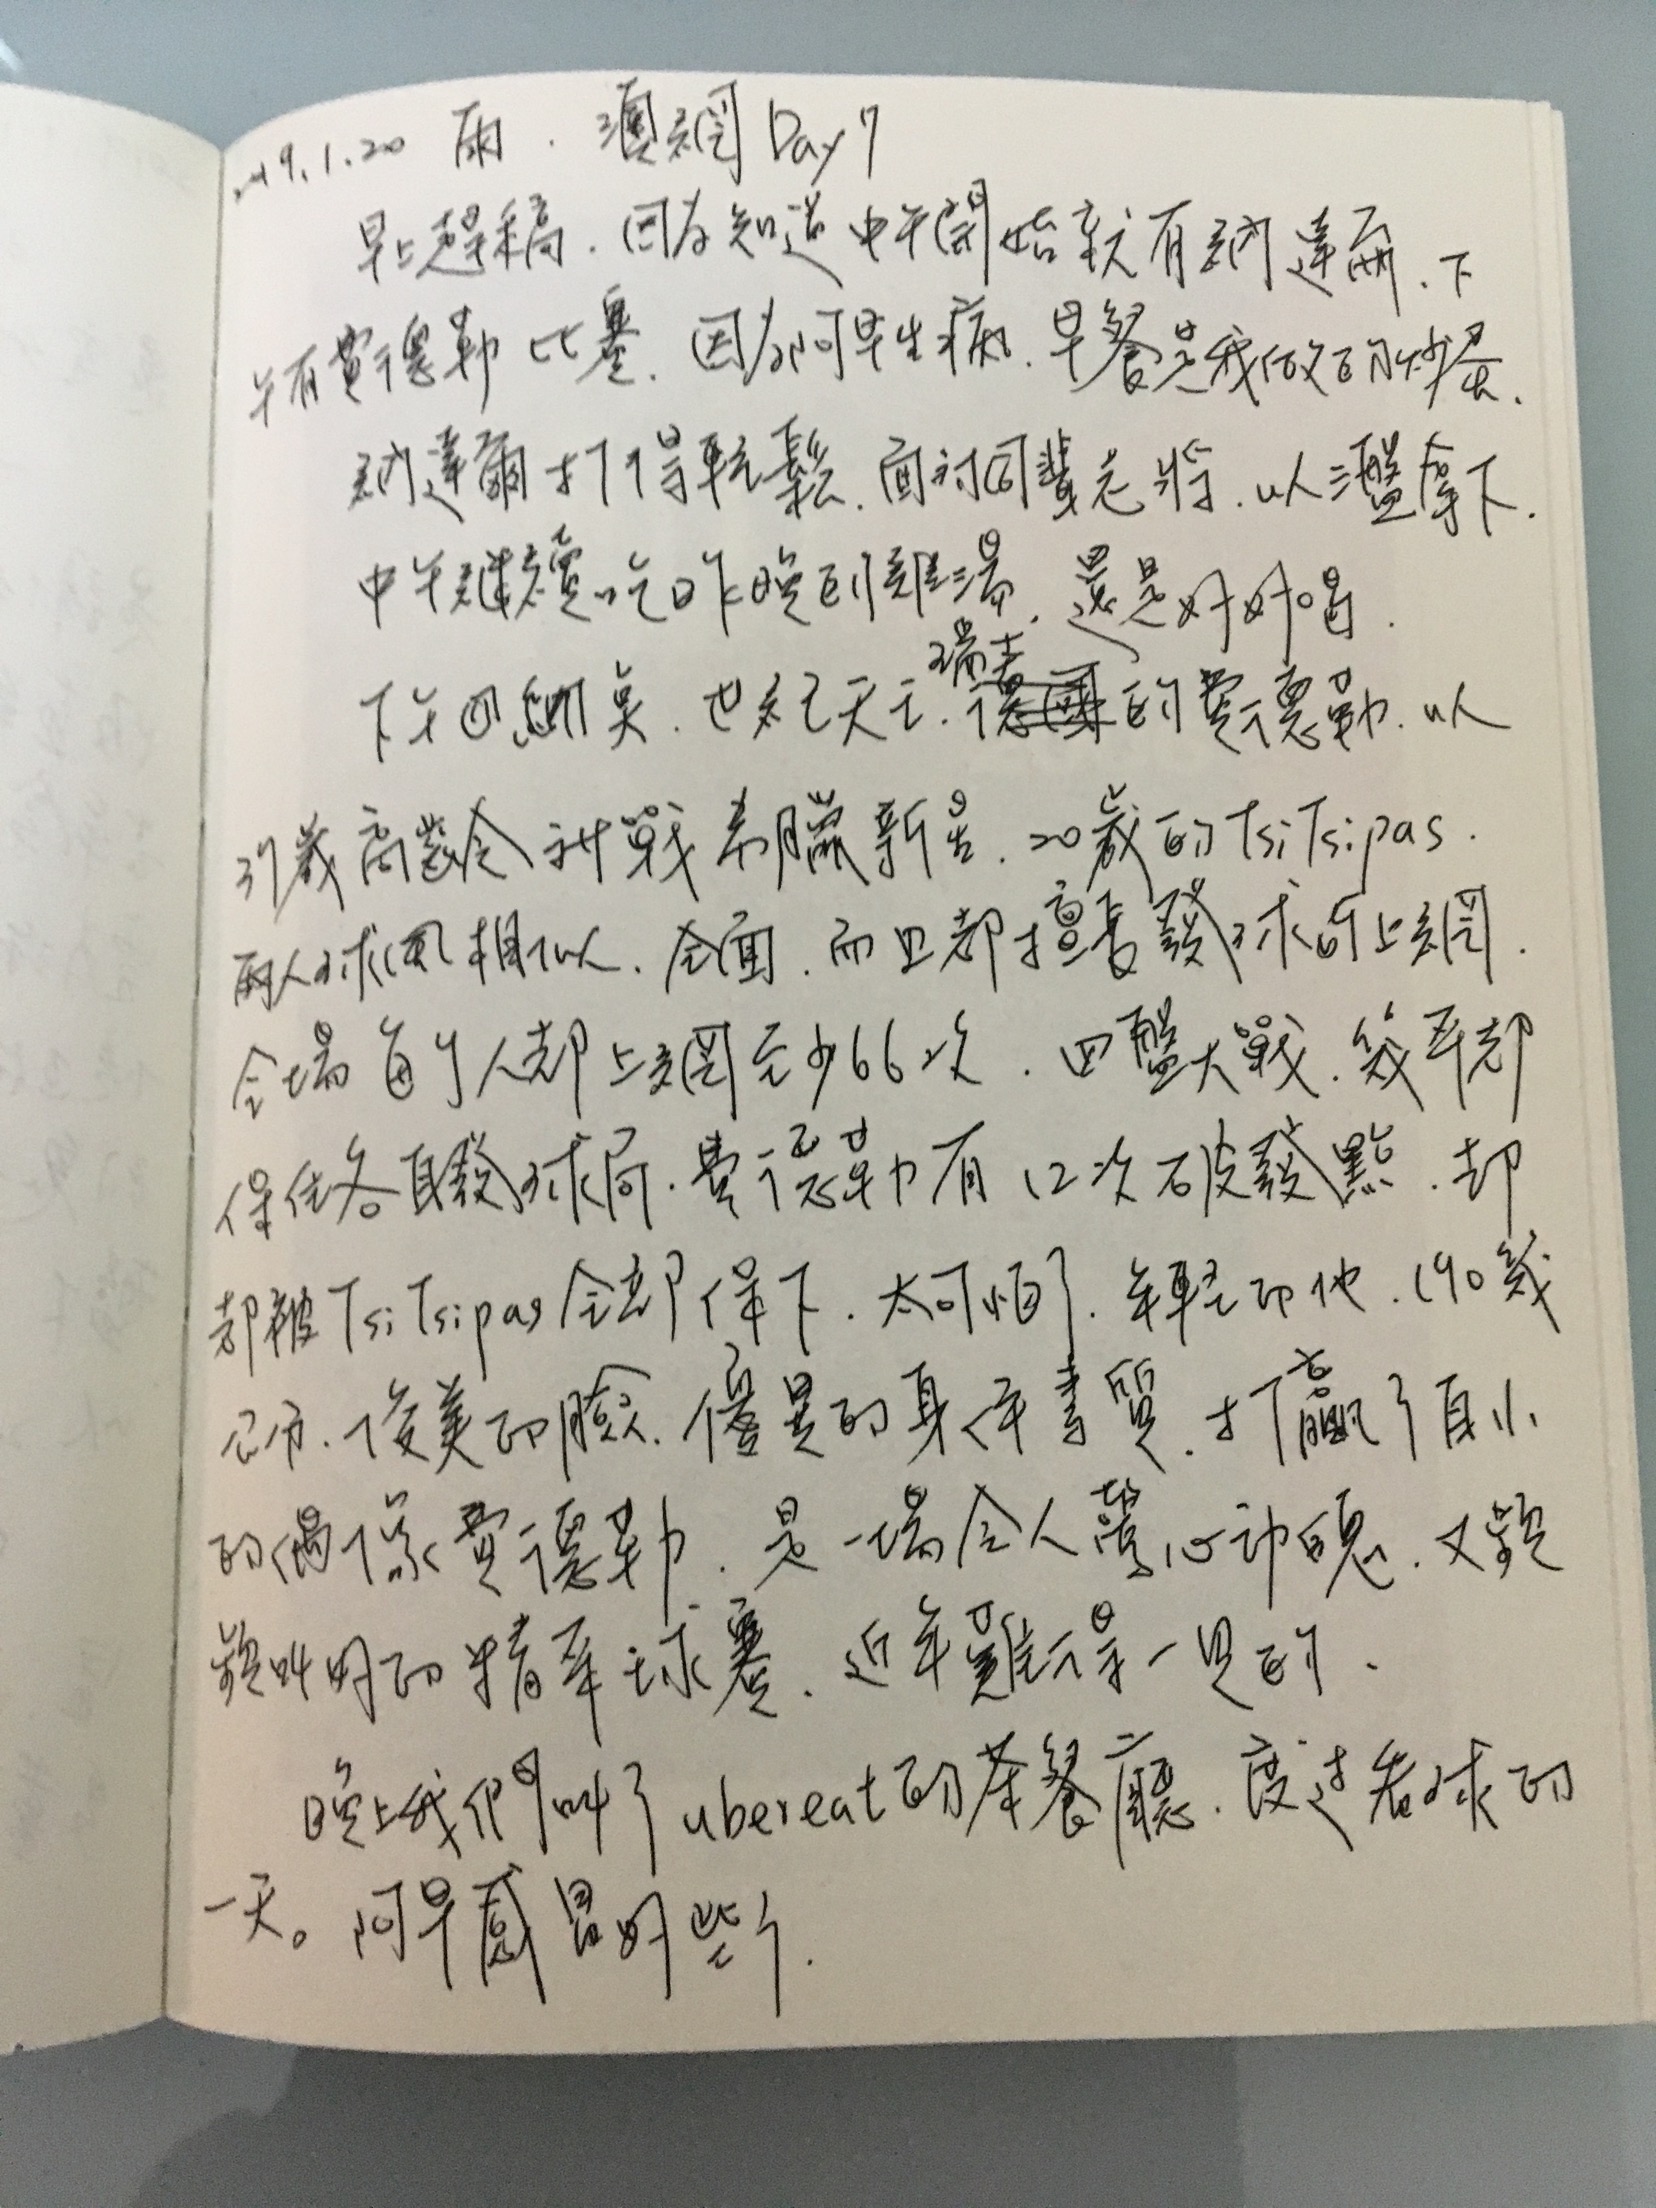 2019.1.20 雨. 澳網 Day 7
早上趕稿. 因為知道中午開始就有納達爾. 下
午有費德勒比賽. 因為阿早生病. 早餐是我做的炒蛋.
納達爾打得輕鬆. 面對同輩老將. 以三盤拿下.
中午繼續吃昨晚的雞湯. 還是好好喝.
下午四點. 世紀天王. 瑞士的費德勒. 以
37歲高齡 對戰希臘新星. 20歲的TsiTsipas.
兩人球風相似. 全面. 而且都擅長發球的上網.
全場每个人都上網至少66次. 四盤大戰. 幾乎都
保住各自發球局. 費德勒有12次破發點. 却
都被TsiTsipas全部保下. 太可怕了. 年輕的他. 190幾
公分. 俊美的臉. 優異的身体素質. 打贏了自小
的偶像費德勒. 是一場令人驚心動魄. 又頻
頻叫好的精采球賽. 近年難得一見的.
晚上我們叫了ubereat的茶餐廳. 度過看球的
一天。阿早感冒好些了.